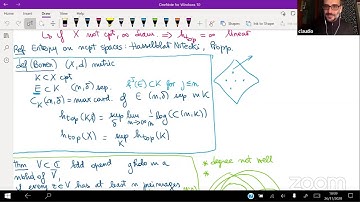 OneNote for Windows 10
claudio
→ if X not cpt, ∞ dim → htop = ∞ linear
Ref Entropy on ncpt spaces: Hasselblat Nitecki, Propp.
def (Bowen) (X,d) metric
K ⊂ X cpt
E ⊂ K (n,δ) sep. f^j(E) ⊂ K for j ≤ n
C_K(n,δ) = max card. of E (n,δ) sep in K
htop(K,f) = sup_δ lim_{n→∞} 1/n log(C(n,K))
htop(X) = sup_K htop(K)
thm V ⊂ ℂ bdd open g holo in a
nbhd of V̄,
if every z ∈ V has at least n preimages
* degree not well
*
zoom
26/11/2020